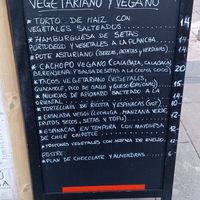 VEGETARIANO Y VEGANO
* TORTO DE MAIZ CON
VEGETALES SALTEADOS 14
* HAMBURGUESA DE SETAS
PORTOBELLO Y VEGETALES A LA PLANCHA 14
* POTE ASTURIANO (BERZAS, PATATAS, VERDURAS) 15
* CACHOPO VEGANO (CALABAZA, CALABACÍN
BERENJENA Y SALSA DE SETAS A LA CREMA COCO) 20
* TACOS VEGETARIANO (VEGETALES,
GUACAMOLE, PICO DE GALLO Y QUESO (OPCIONAL) 15
* NOODLES DE ARROZ SALTEADO A LA
ORIENTAL 14
* TORTELLINIS DE RICOTTA Y ESPINACAS 12
* ENSALADA VEGGI (LECHUGA, MANZANA VERDE
FRUTOS SECOS, SETAS Y TOFU) 12
* ESPINACAS EN TEMPURA CON MAYONESA
DE CHILE CHIPOTLE 12
POSTRE
* FLAN DE CHOCOLATE Y ALMENDRAS 6